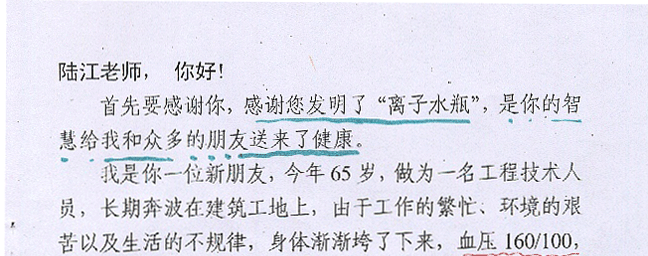 陆江老师， 你好！
首先要感谢你，感谢您发明了“离子水瓶”，是你的智
慧给我和众多的朋友送来了健康。
我是你一位新朋友，今年 65 岁，做为一名工程技术人
员，长期奔波在建筑工地上，由于工作的繁忙、环境的艰
苦以及生活的不规律，身体渐渐垮了下来，血压 160/100，